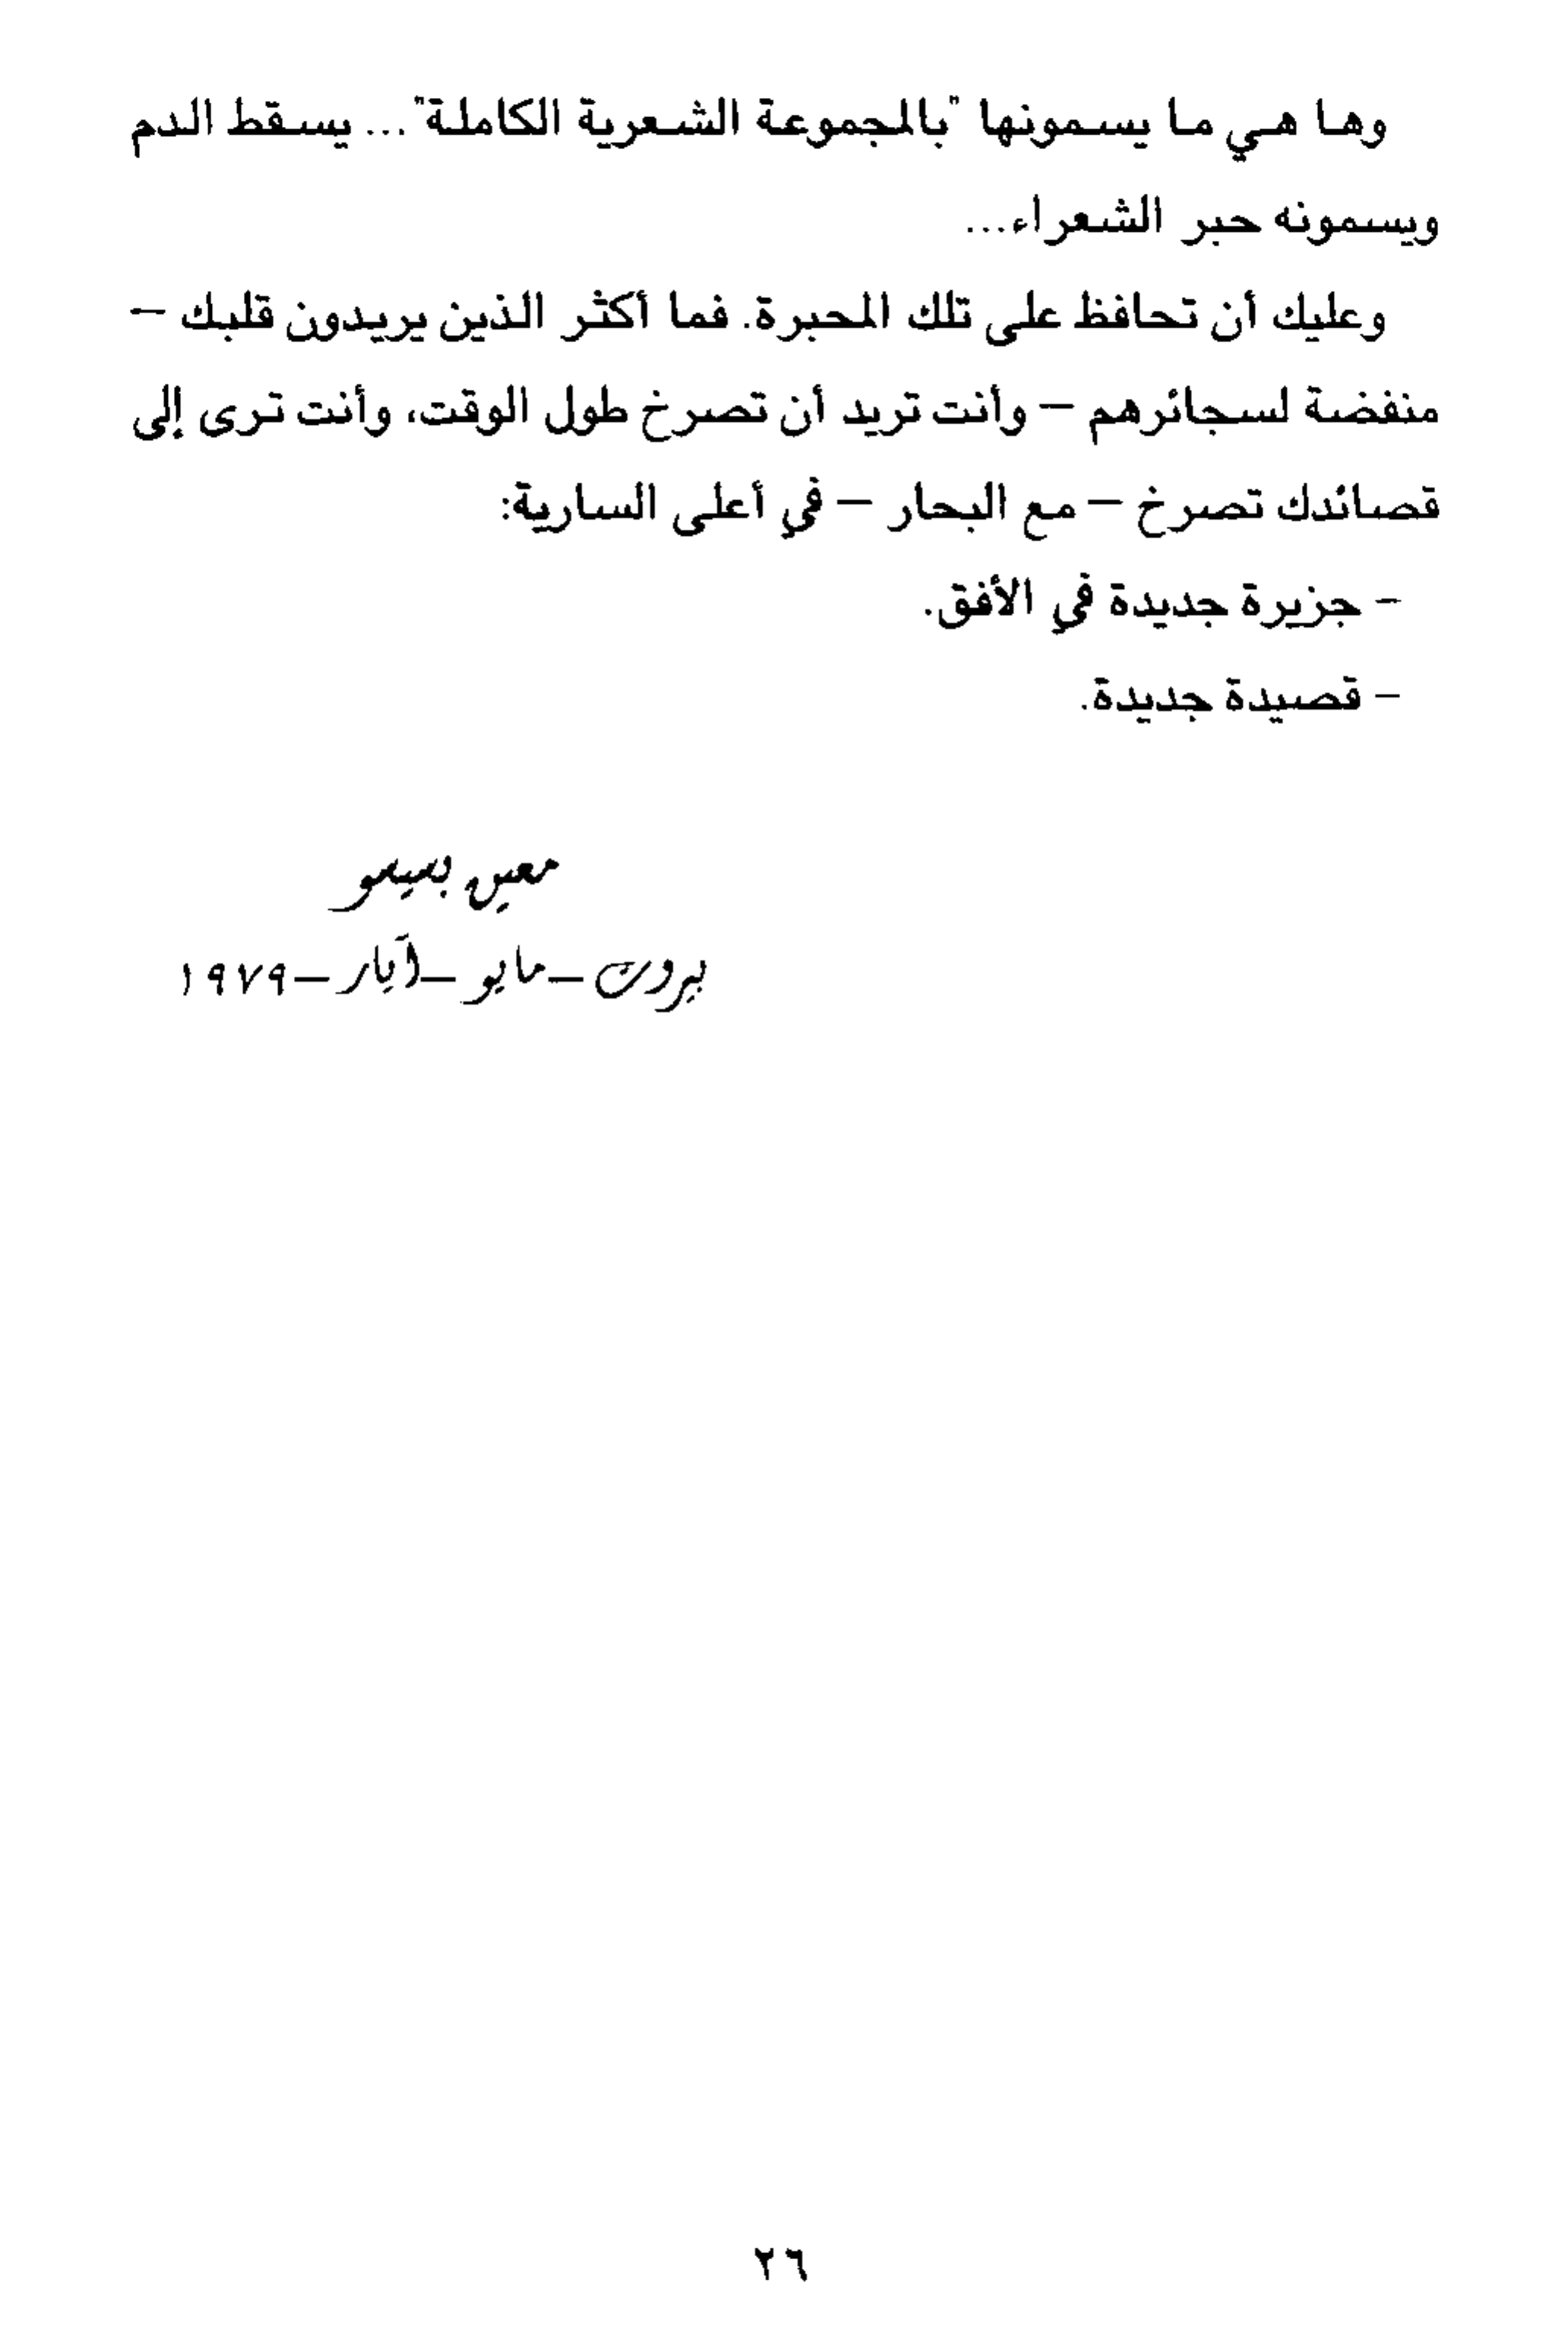 وها هي ما يسمونها "بالمجموعة الشعرية الكاملة"... يسقط الدم
ويسمونه حبر الشعراء...
وعليك أن تحافظ على تلك المحبرة. فما أكثر الذين يريدون قلبك –
منفضة لسجائرهم – وأنت تريد أن تصرخ طول الوقت، وأنت ترى إلى
قصائدك تصرخ – مع البحار – في أعلى السارية:
– جزيرة جديدة في الأفق.
– قصيدة جديدة.
معين بسيسو
بيروت – مايو – آيار – ١٩٧٩
٢٦